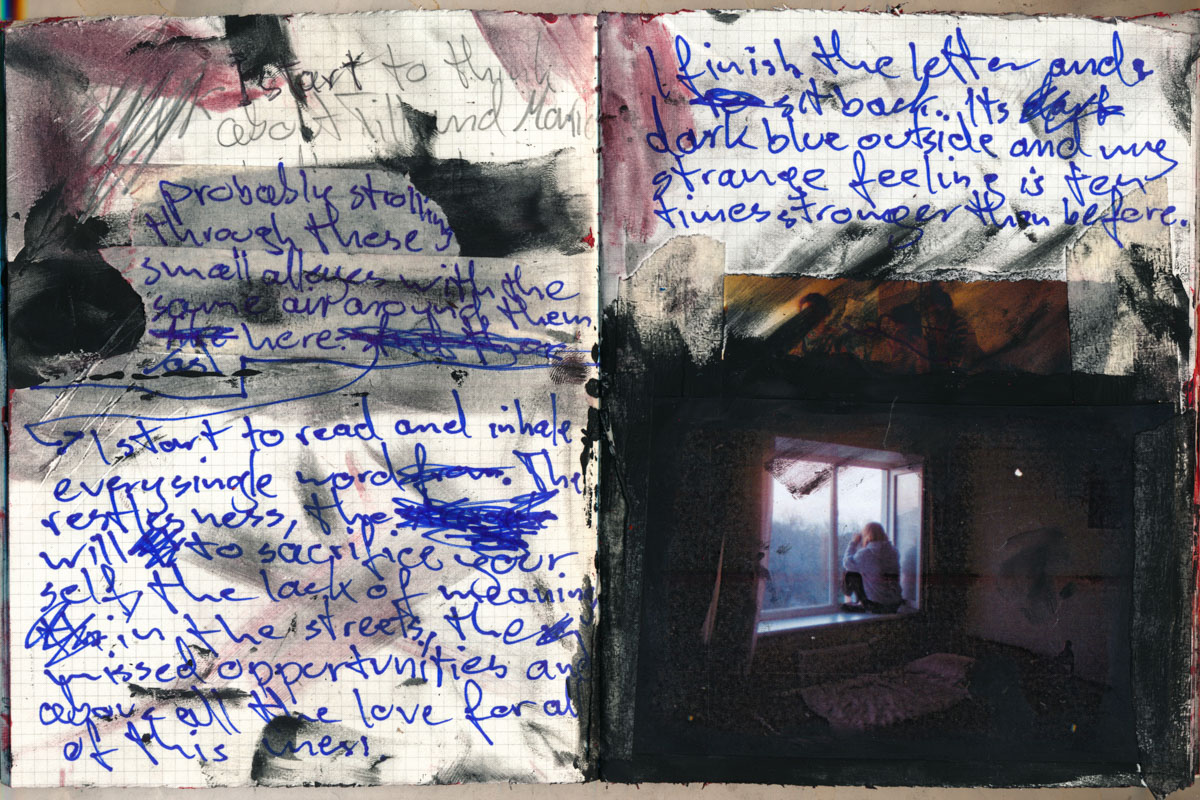 I start to think
about Till and
probably stolling
through these
small alleyes with the
same air around them
the here.
I start to read and inhale
every single word from. The
restlessness, the
will to sacrifice your
self, the lack of meaning
in the streets, the
missed opportunities and
above all the love for al
of this mess
I finish the letter and
sit back.. Its dark
dark blue outside and my
strange feeling is ten
times stronger than before.